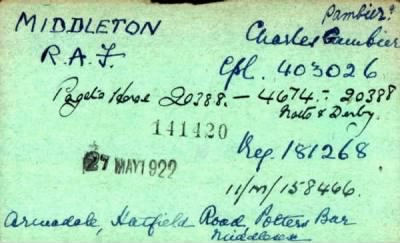 Pambier?
MIDDLETON
Charles Cambier
R.A.F.
Cpl. 403026
Paget's Horse 20388. — 4674. - 20388
Notts & Derby.
141420
Reg. 181268
27 MAY 1922
11/M/158466.
Armadale, Hatfield Road Potters Bar
Middlesex